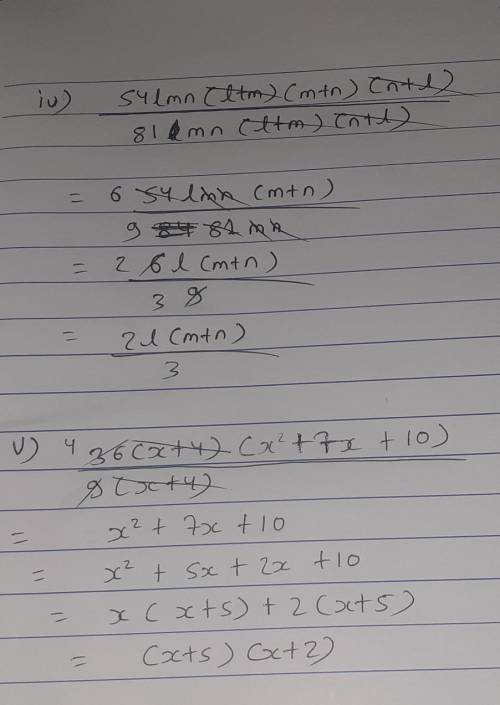 iv) 54lmn (l+m) (m+n) (n+l)
81 mn (l+m) (n+l)
= 6 54 lmn (m+n)
9 81 mn
= 2 6 l (m+n)
3 9
= 2l (m+n)
3
V) 4 36 (x+4) (x² + 7x + 10)
9 (x+4)
= x² + 7x + 10
= x² + 5x + 2x + 10
= x ( x+5) + 2 (x+5)
= (x+5) (x+2)